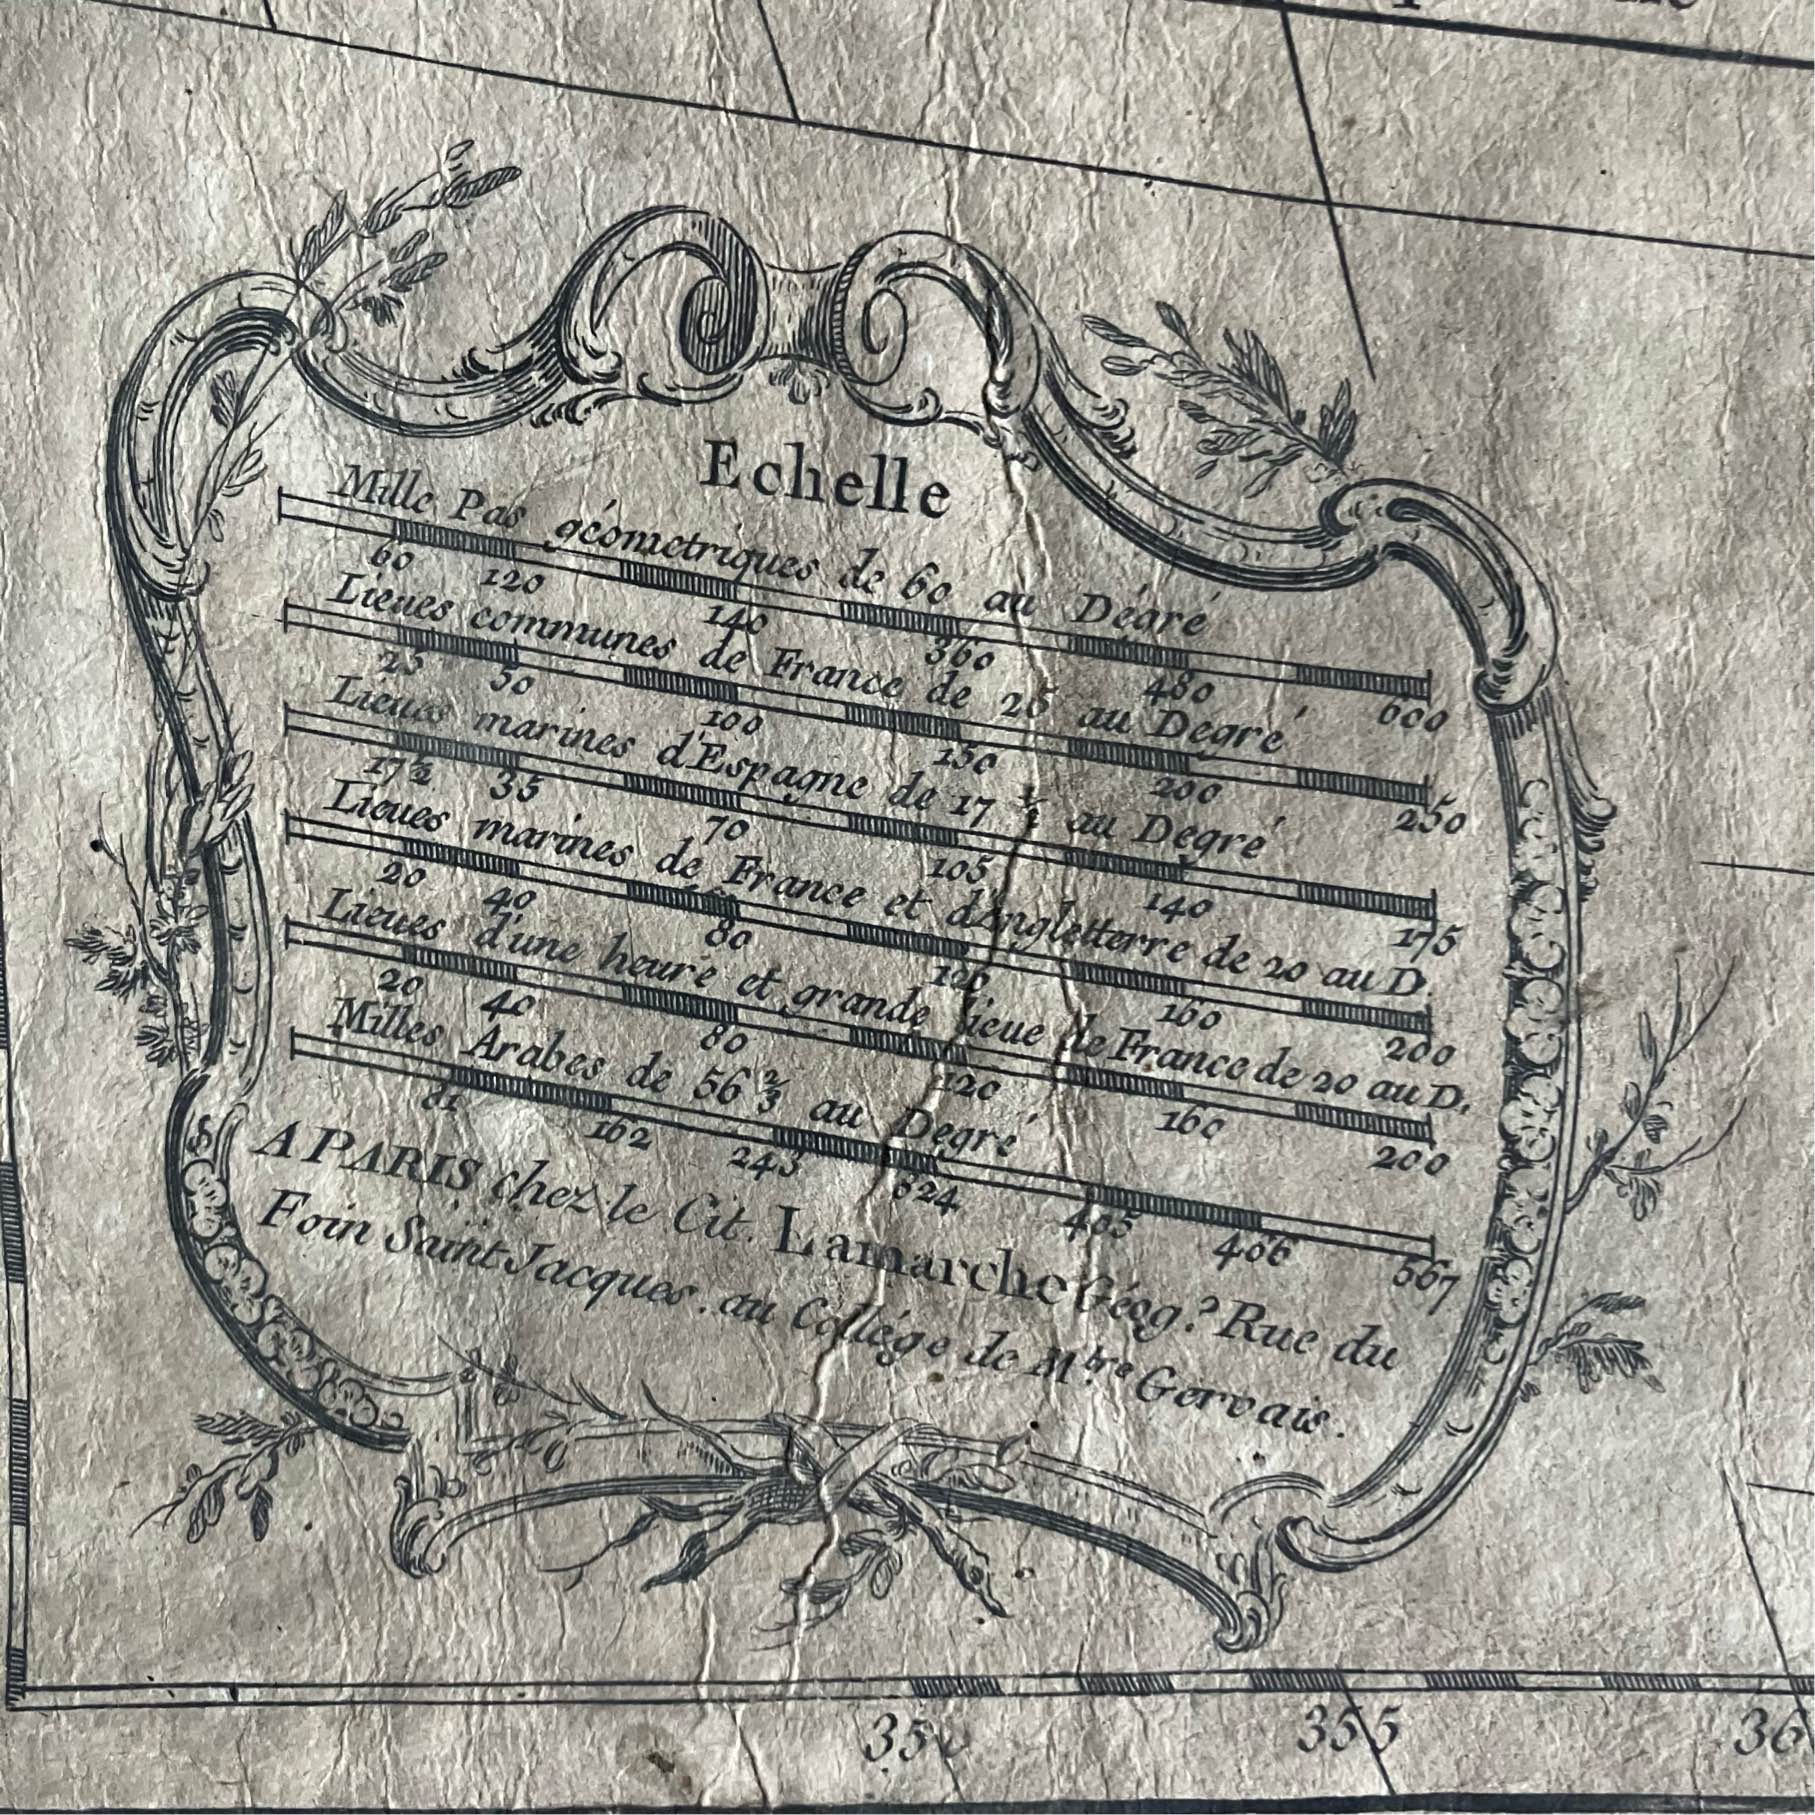 Echelle
Mille Pas géometriques de 60 au Dégré
60 120 140 360 480 600
Lieues communes de France de 25 au Degré
25 50 100 150 200 250
Lieues marines d'Espagne de 17 ½ au Degré
17½ 35 70 105 140 175
Lieues marines de France et d'Angletterre de 20 au D.
20 40 80 120 160 200
Lieues d'une heure et grande lieue de France de 20 au D.
20 40 80 120 160 200
Milles Arabes de 56 ⅔ au Degré
81 162 243 324 405 486 567
A PARIS chez le Cit. Lamarche Géog.? Rue du
Foin Saint Jacques. au Collége de M.tre Gervais.
350 355